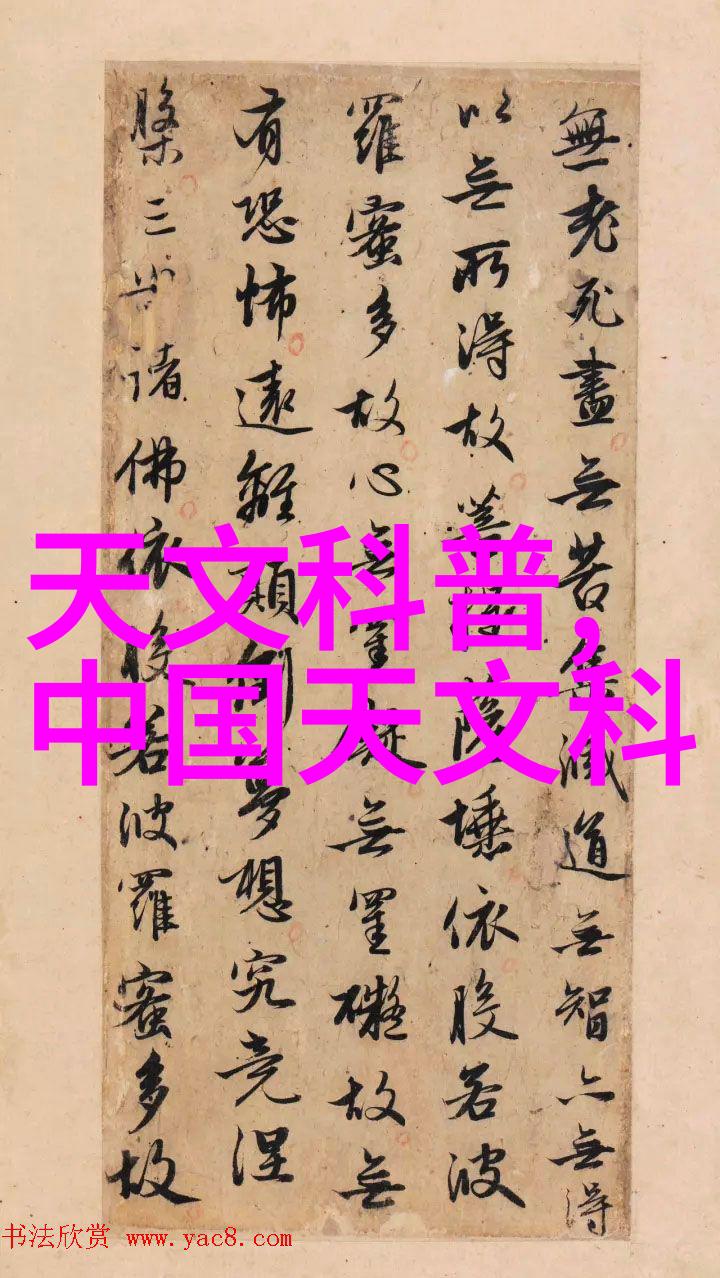 無老死盡无苦集滅道无智亦无得
以无所得故菩提薩埵依般若波
羅蜜多故心无罣礙无罣礙故无
有恐怖遠離顛倒夢想究竟涅
槃三世諸佛依般若波羅蜜多故
天文科普,
中国天文科
书法欣赏 www.yac8.com